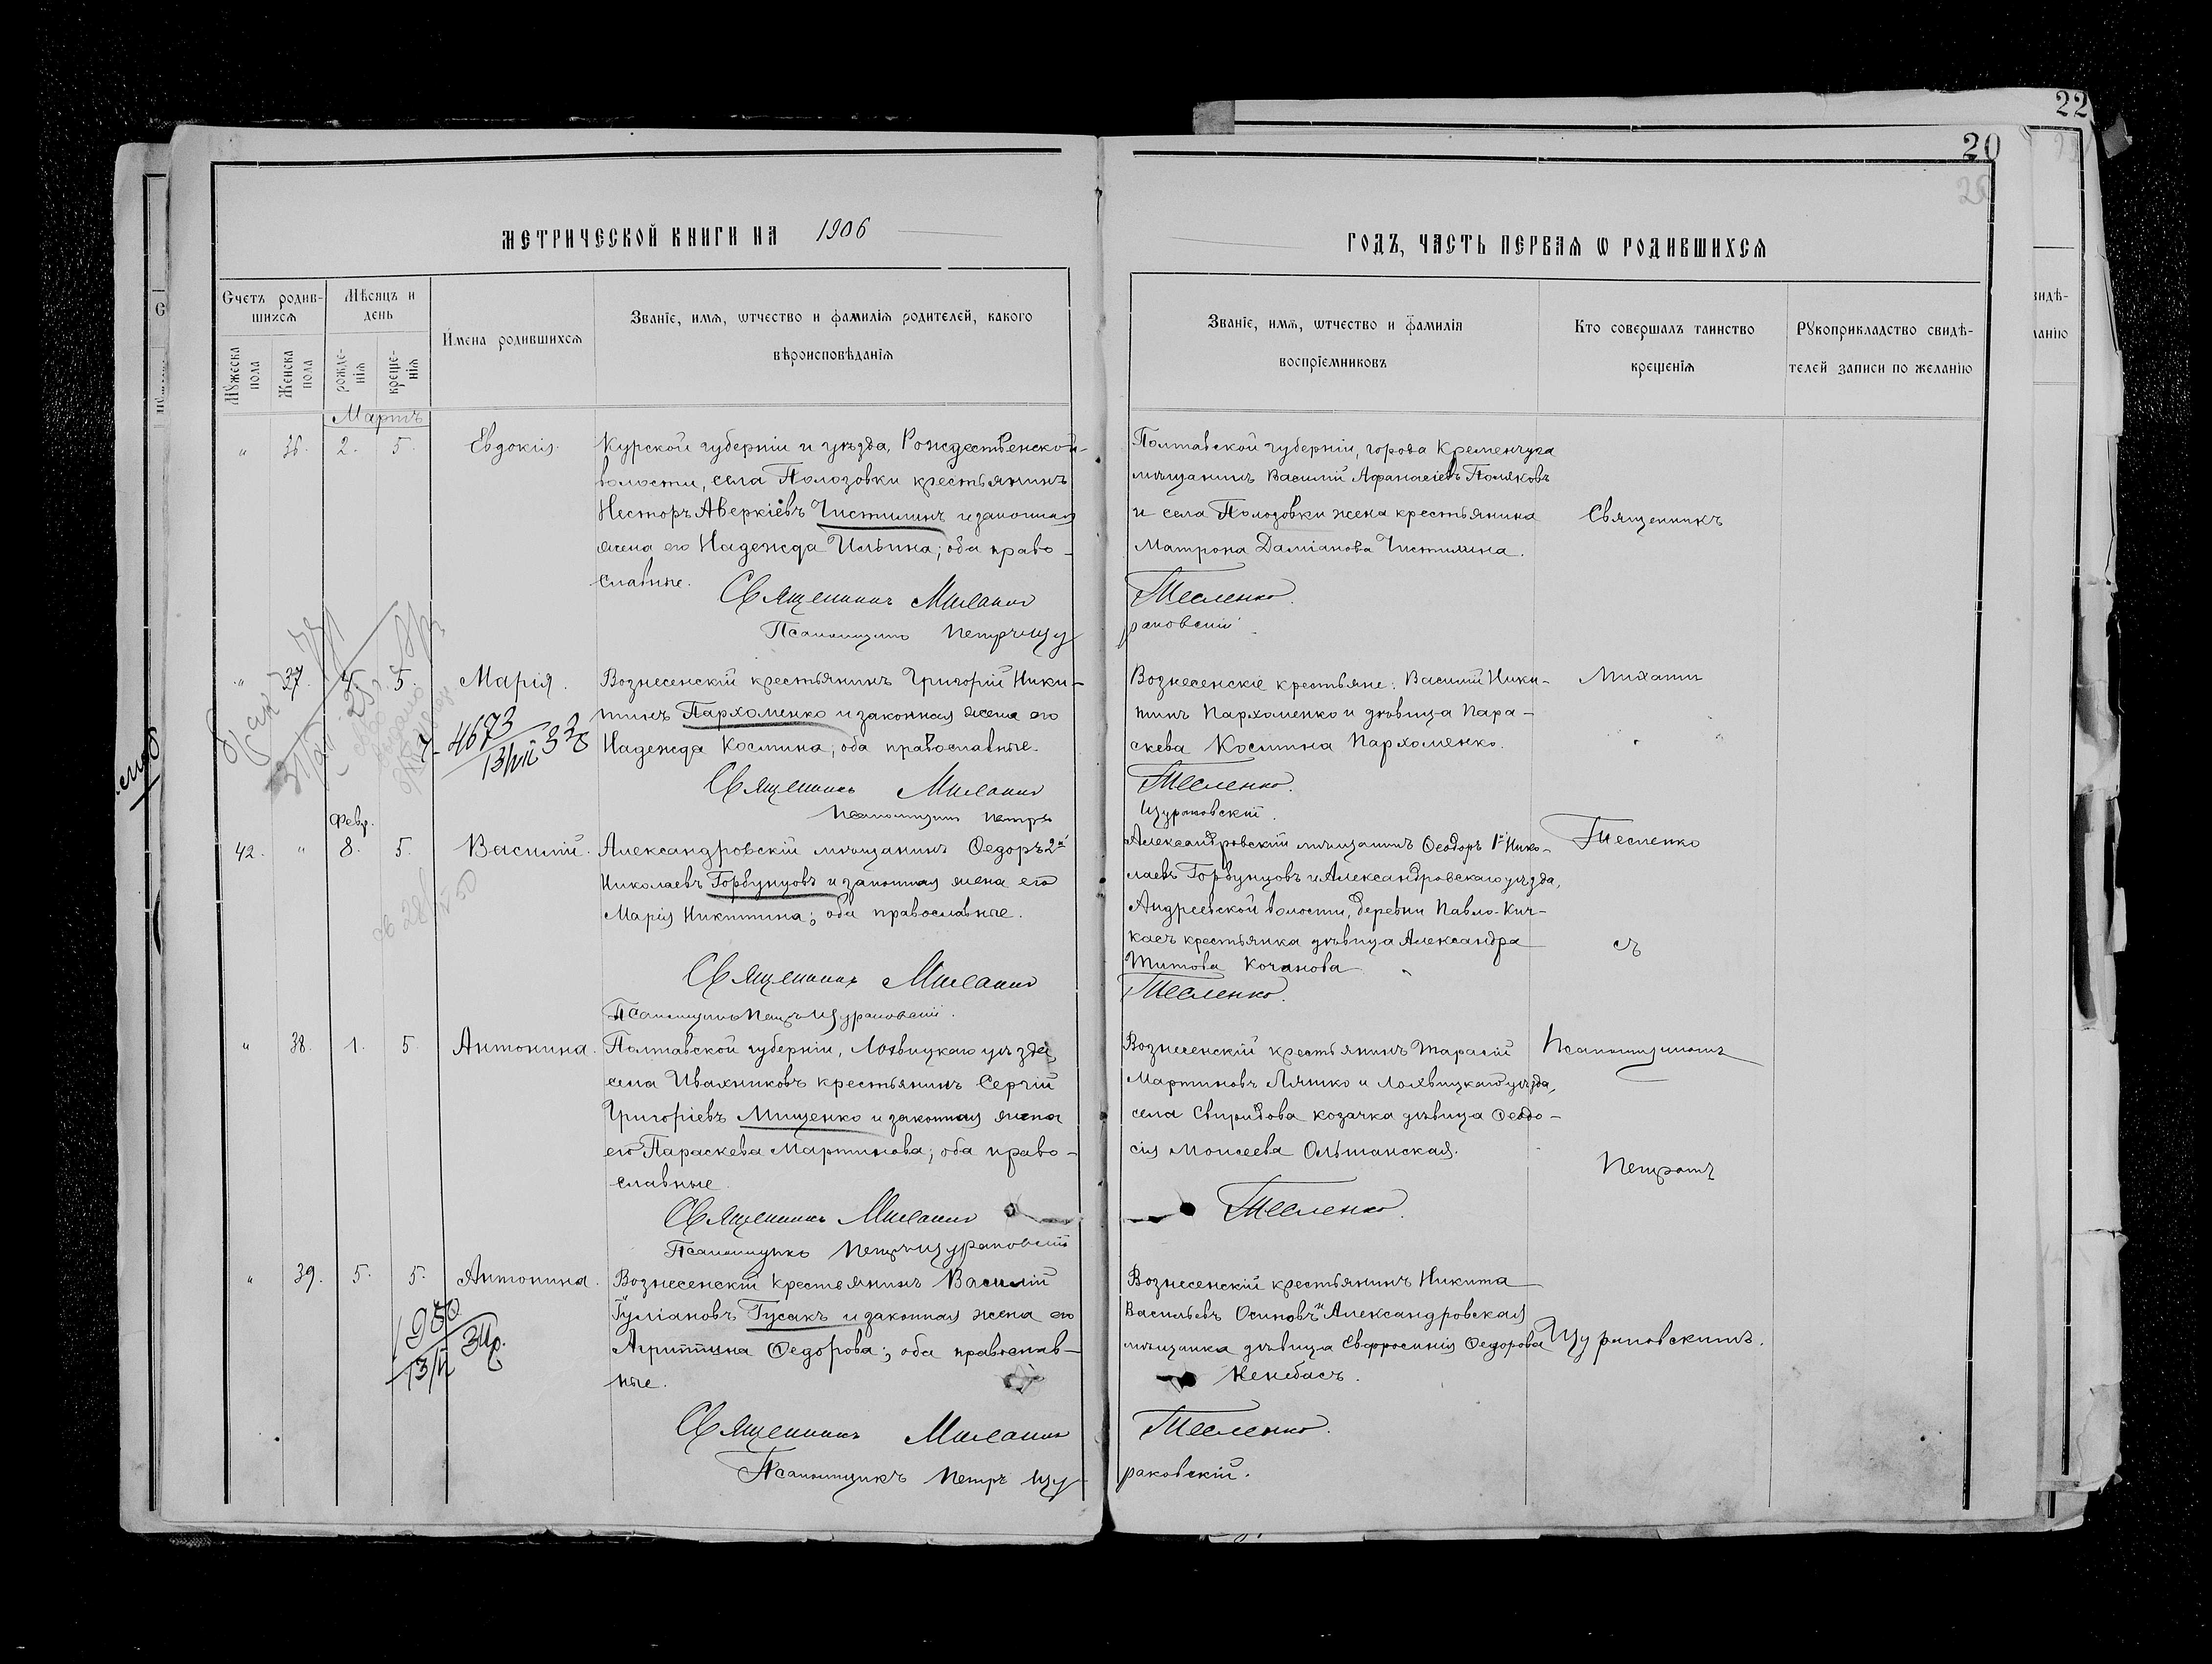 22
20
МЕТРИЧЕСКОЙ КНИГИ НА 1906
ГОДЪ, ЧАСТЬ ПЕРВАЯ Ѡ РОДИВШИХСЯ
Счетъ родив-
шихся
Мѣсяцъ и
день
Имена родившихся
Званіе, имя, ѡтчество и фамилія родителей, какого
вѣроисповѣданія
Мужеска пола
Женска пола
рожде-
нія
креще-
нія
Званіе, имя, ѡтчество и фамилія
воспріемниковъ
Кто совершалъ таинство
крещенія
Рукоприкладство свидѣ-
телей записи по желанію
Мартъ
" 36. 2. 5. Евдокія.
Курской губерніи и уѣзда, Рождественской
волости, села Полозовки крестьянинъ
Несторъ Аверкіевъ Чистилинъ и законная
жена его Надежда Ильина; оба право-
славные.
Священникъ Михаилъ
Псаломщикъ Петръ Цу
Полтавской губерніи, города Кременчуга
мѣщанинъ Василій Афанасіевъ Поляковъ
и села Полозовки жена крестьянина
Матрона Даміанова Чистилина.
Тесленко.
раковскій
" 37. 5. Марія.
4673
Вознесенскій крестьянинъ Григорій Ники-
тинъ Пархоменко и законная жена его
Надежда Космина; оба православные.
Священникъ Михаилъ
Псаломщикъ Петръ
Вознесенскіе крестьяне: Василій Ники-
тинъ Пархоменко и дѣвица Пара-
скева Космина Пархоменко.
Тесленко.
Цураковскій.
Февр.
42. " 8. 5. Василій.
Александровскій мѣщанинъ Ѳедоръ 2й
Николаевъ Горбунцовъ и законная жена его
Марія Никитина; оба православные.
Священникъ Михаилъ
Псаломщикъ Петръ Цураковскій.
Александровскій мѣщанинъ Ѳеодоръ 1й Нико-
лаевъ Горбунцовъ и Александровскаго уѣзда,
Андреевской волости, деревни Павло-Кич-
касъ крестьянка дѣвица Александра
Титова Кочанова
Тесленко.
" 38. 1. 5 Антонина.
Полтавской губерніи, Лохвицкаго уѣзда,
села Ивахниковъ крестьянинъ Сергій
Григоріевъ Мищенко и законная жена
его Параскева Мартинова; оба право-
славные.
Священникъ Михаилъ
Псаломщикъ Петръ Цураковскій
Вознесенскій крестьянинъ Тарасій
Мартиновъ Ляшко и Лохвицкаго уѣзда,
села Свиридова козачка дѣвица Ѳеодо-
сія Моисеева Ольшанская.
Тесленко.
" 39. 5. 5. Антонина.
Вознесенскій крестьянинъ Василій
Іуліановъ Гусакъ и законная жена его
Агриппина Ѳедорова; оба православ-
ные.
Священникъ Михаилъ
Псаломщикъ Петръ Цу-
Вознесенскій крестьянинъ Никита
Васильевъ Осиповъ и Александровская
мѣщанка дѣвица Евфросинія Ѳедорова
Кенебасъ.
Тесленко.
раковскій.
Священникъ
Михаилъ
Тесленко
съ
Псаломщикомъ
Петромъ
Цураковскимъ.